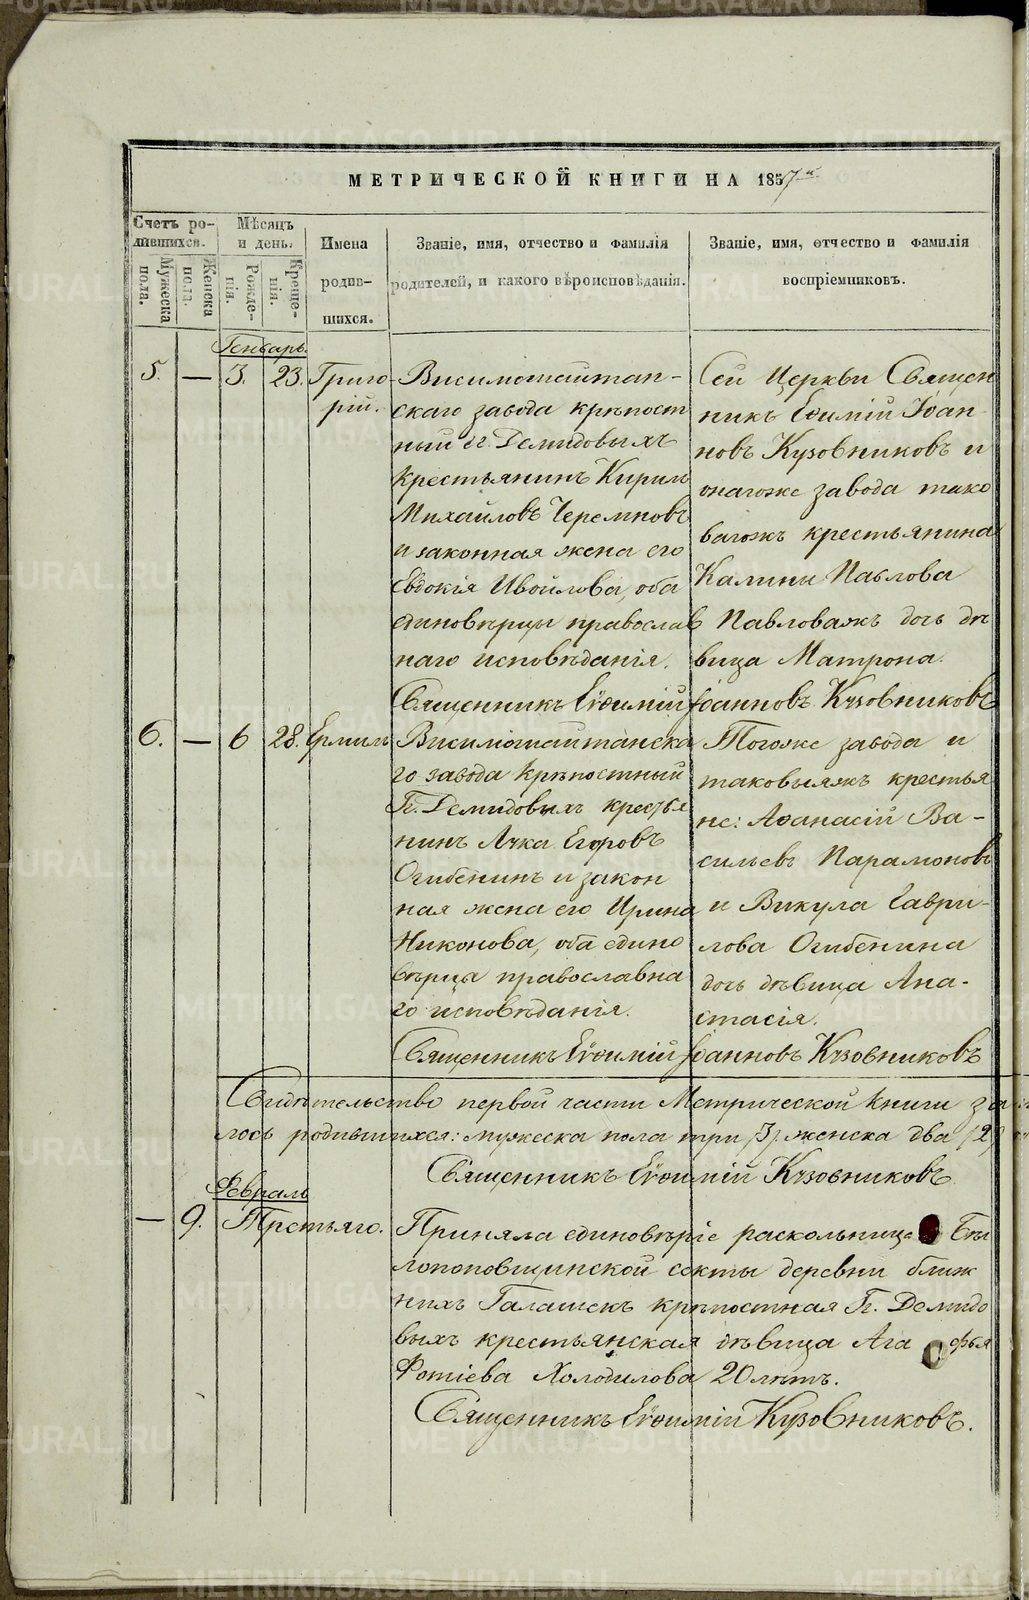 МЕТРИЧЕСКОЙ КНИГИ НА 1857й
Счетъ родившихся.
Мужеска пола.
Женска пола.
Мѣсяцъ и день.
Рожденія.
Крещенія.
Имена родившихся.
Званіе, имя, отчество и фамилія
родителей, и какого вѣроисповѣданія.
Званіе, имя, отчество и фамилія
воспріемниковъ.
Генварь.
5. — 3. 23. Григорій.
Висимошайтан-
скаго завода крѣпост
ный Гг. Демидовыхъ
крестьянинъ Кирилъ
Михайловъ Черемновъ
и законная жена его
Евдокія Ивойлова, оба
единовѣрцы православ
наго исповѣданія.
Сей Церкви Священ
никъ Евѳимій Іоан-
новъ Кузовниковъ и
онагоже завода тако
вагожъ крестьянина
Калины Павлова
Павловажъ дочь дѣ
вица Матрона.
Священникъ Евѳимій Іоанновъ Кузовниковъ
6. — 6 28. Ермилъ
Висимошайтанска
го завода крѣпостный
Гг. Демидовыхъ кресть
янинъ Егоровъ
Огибенинъ и закон
ная жена его Ирина
Никонова, оба едино
вѣрцы православна
го исповѣданія.
Тогоже завода и
таковыяжъ крестья
не: Аѳанасій Ва-
сильевъ Парамоновъ
и Викула Гаври-
лова Огибенина
дочь дѣвица Ана-
стасія.
Священникъ Евѳимій Іоанновъ Кузовниковъ
Свидѣтельство первой части Метрической книги
лось родившихся: мужеска пола три /3/, женска два /2/
Священникъ Евѳимій Кузовниковъ
Февраль
— 9. Третьяго.
Приняла единовѣріе раскольница Бѣг
лопоповщинской секты деревни ближ
нихъ Галашекъ крѣпостная Гг. Демидо
выхъ крестьянская дѣвица Агафья
Фотіева Холодилова 20 лѣтъ.
Священникъ Евѳимій Кузовниковъ.
METRIKI.GASO-URAL.RU